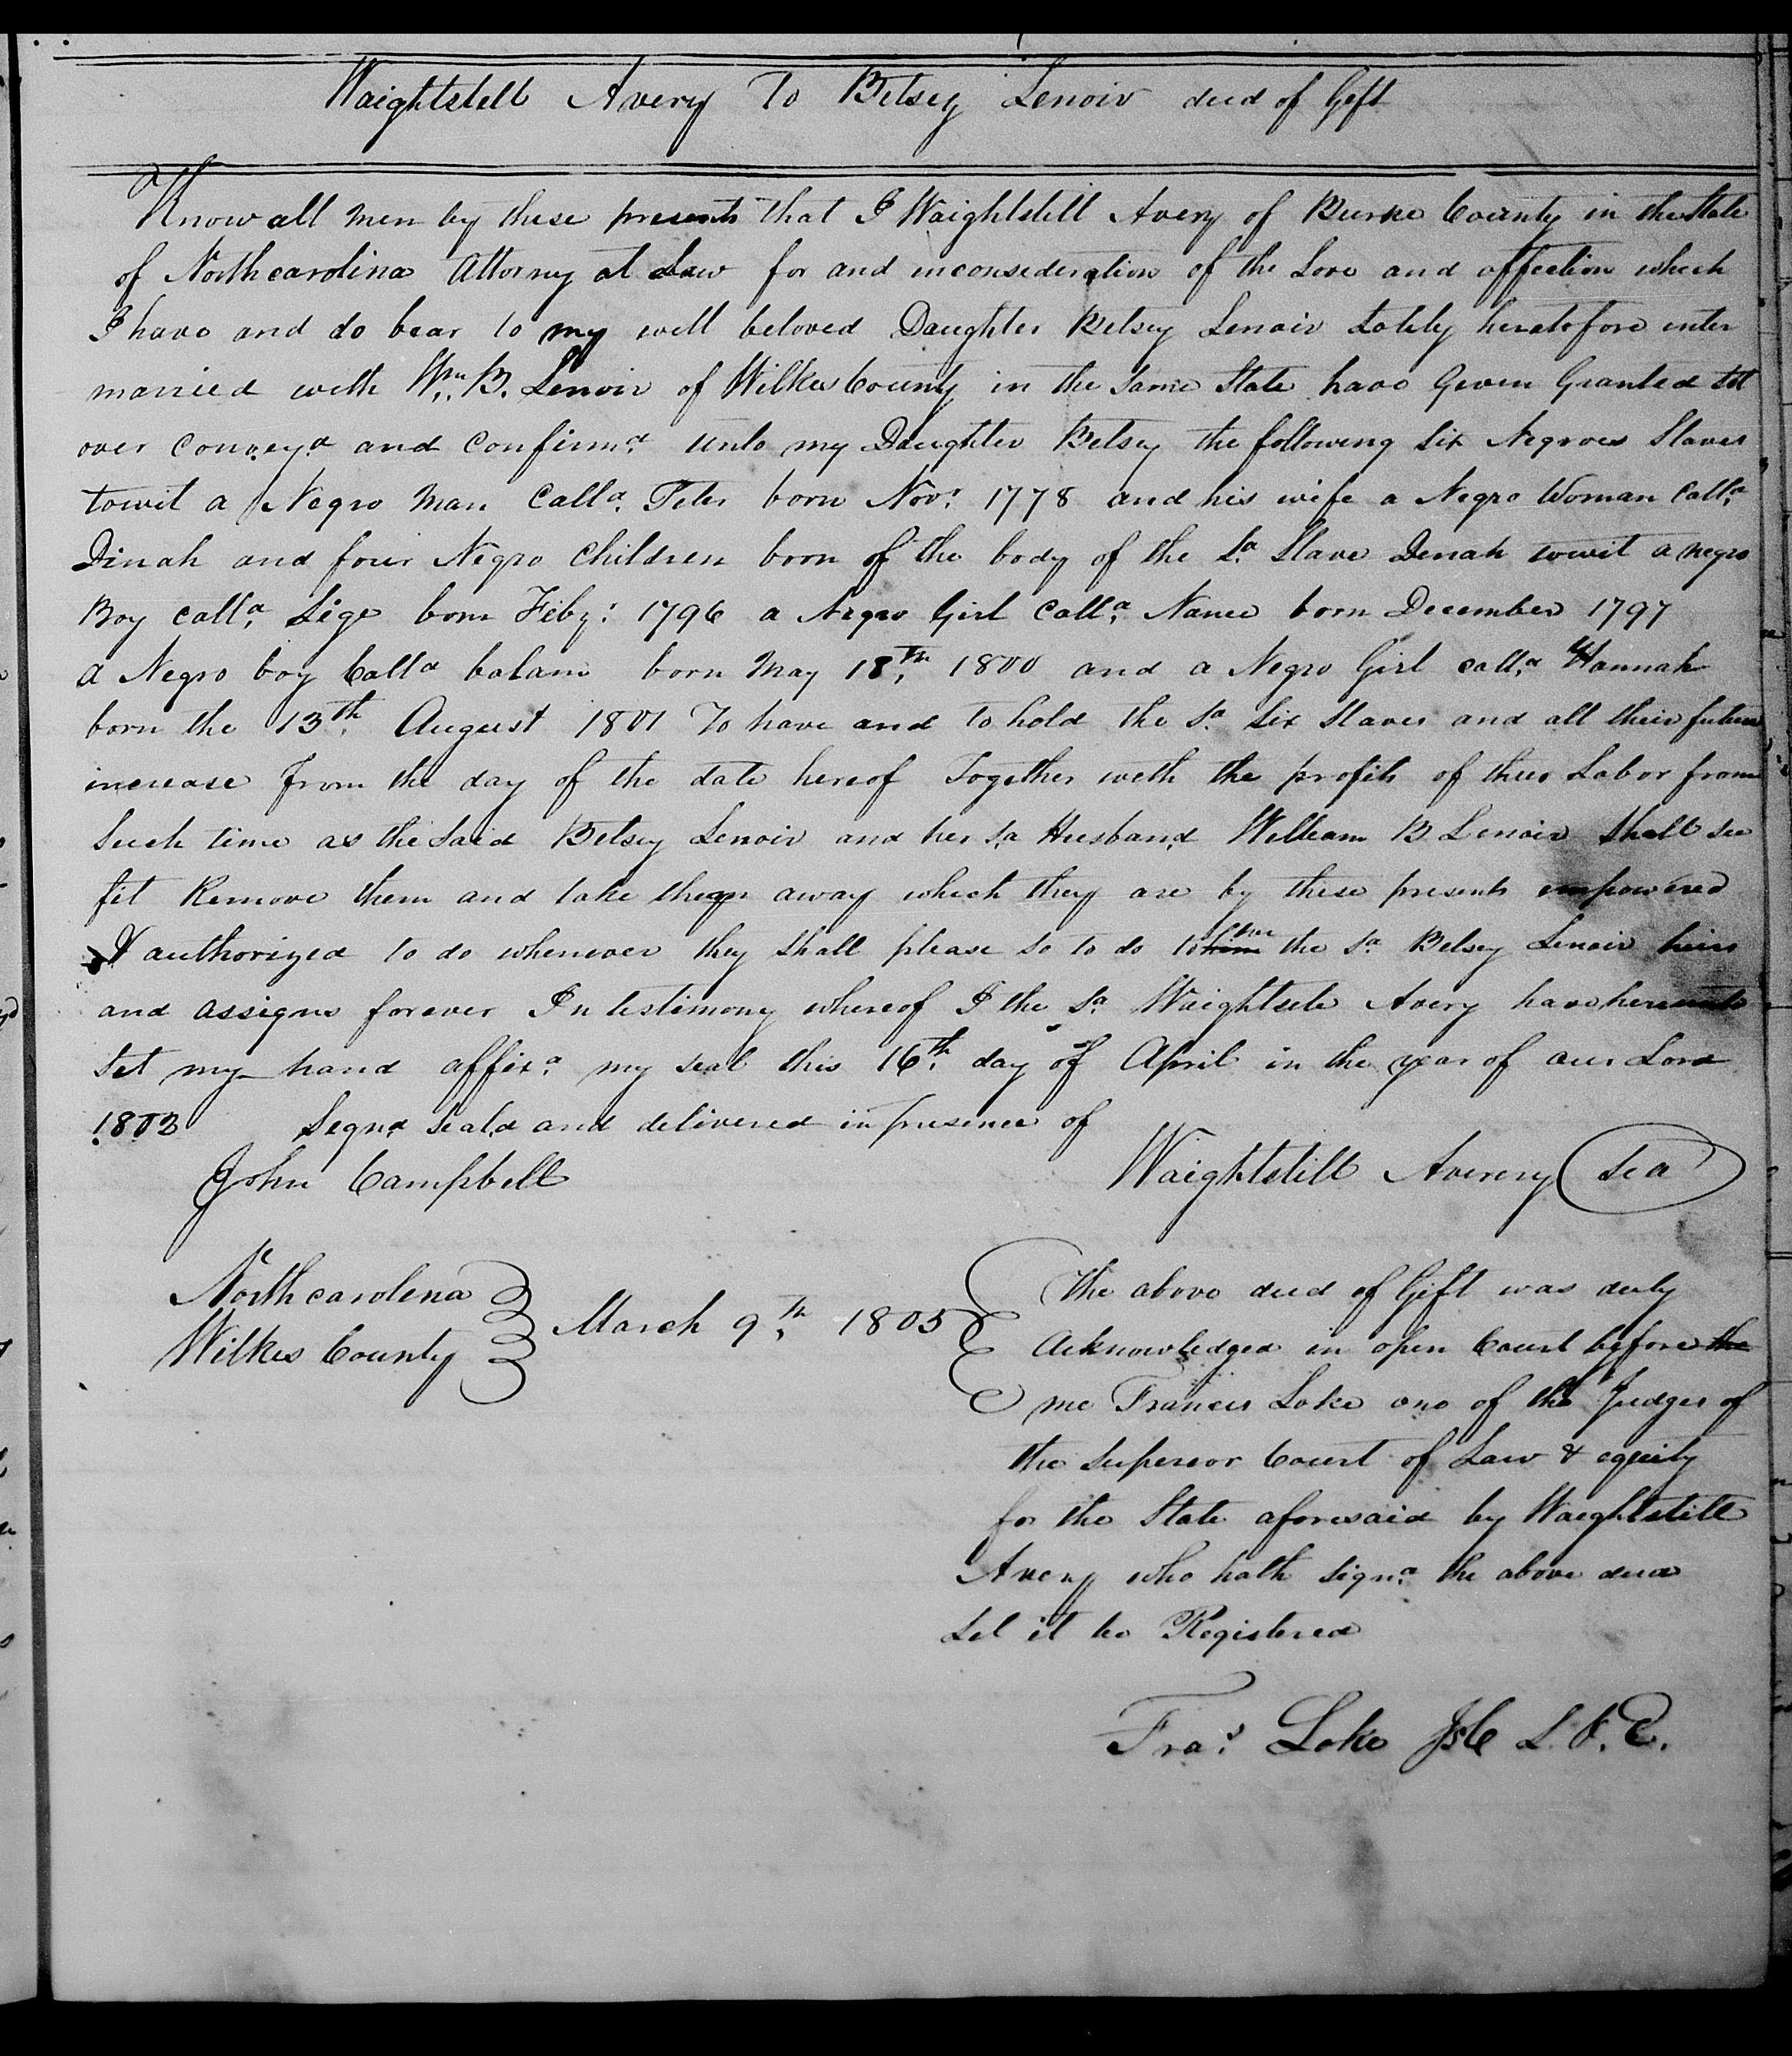 Waightstell Avery To Betsey Lenoir deed of Gift
Know all men by these presents that I Waightstill Avery of Burke County in the State
of Northcarolina Attorney at Law for and inconsideration of the Love and affection which
I have and do bear to my well beloved Daughter Betsey Lenoir Lately heretofore inter
married with Wm. B. Lenoir of Wilkes County in the same State have Given Granted Set
over Convey.d and Confirm.d unto my Daughter Betsey the following Six Negroes Slaves
towit a Negro Man Call.d Peter born Nov.r 1778 and his wife a Negro Woman Call.d
Dinah and four Negro Children born of the body of the S.d Slave Denah towit a negro
Boy call.d Lige born Feby: 1796 a Negro Girl Call.d Nance born December 1797
a Negro boy Call.d balam born May 18th, 1800 and a Negro Girl call.d Hannah
born the 13th. August 1801 To have and to hold the s.d Six Slaves and all their future
increase from the day of the date hereof Together with the profits of their Labor from
Such time as the Said Betsey Lenoir and her s.d Husband William B Lenoir Shall see
fit Remove them and take them away which they are by these presents empowered
& authorized to do whenever they shall please so to do to him her the s.d Betsey Lenoir heirs
and assigns forever In testimony whereof I the s.d Waightsele Avery have hereunto
Set my hand affix.d my seal this 16th. day of April in the year of our Lord
1803 Sign.d Seal.d and delivered in presence of
John Campbell Waightstill Averery Sea
Northcarolena
Wilkes County March 9th, 1805
The above deed of Gift was duly
Acknowledged in open Court before the
me Francis Loke one of the Judges of
the Supereor Court of Law & equity
for the State aforesaid by Waightstill
Avery who hath sign.d the above deed
Let it be Registered
Fra.s Loke JsC L. & E.